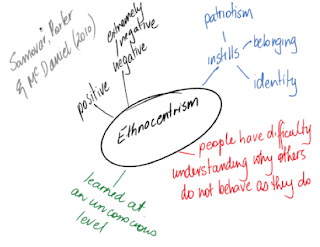 Samovar, Porter
& McDaniel (2010)
positive
negative
extremely
negative
patriotism
instills
belonging
identity
Ethnocentrism
people have difficulty
understanding why others
do not behave as they do
learned at
an unconscious
level